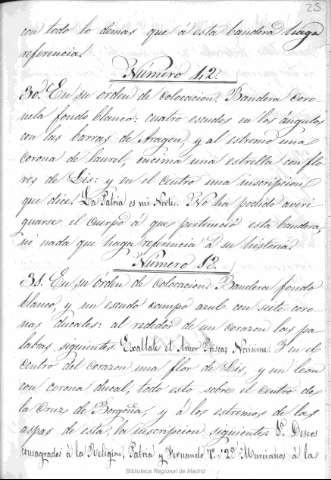 25
con todo lo demas que á esta bandera haga
referencia.
Número 12.
30. En su orden de colocacion. Bandera coro-
nela fondo blanco: cuatro escudos en los ángulos
con las barras de Aragon, y al estremo una
corona de laurel, encima una estrella con flo-
res de Lis: y en el centro una inscripcion
que dice: La Patria es mi Norte. No ha podido averi-
guarse el Cuerpo á que perteneció esta bandera,
ni nada que haga referencia á su historia.
Número 12.
31. En su órden de colocacion. Bandera fondo
blanco, y un escudo campo azul con siete coro-
nas ducales: al rededor de un corazon las pa-
labras siguientes Y en el
centro del corazon una flor de Lis, y un leon
con corona ducal, todo esto sobre el centro de
la Cruz de Borgoña, y á los estremos de las
aspas de esta, la inscripcion siguiente:
consagrados á la Religion, Patria y Fernando 7º. 2º Murcianos á la
Biblioteca Regional de Madrid